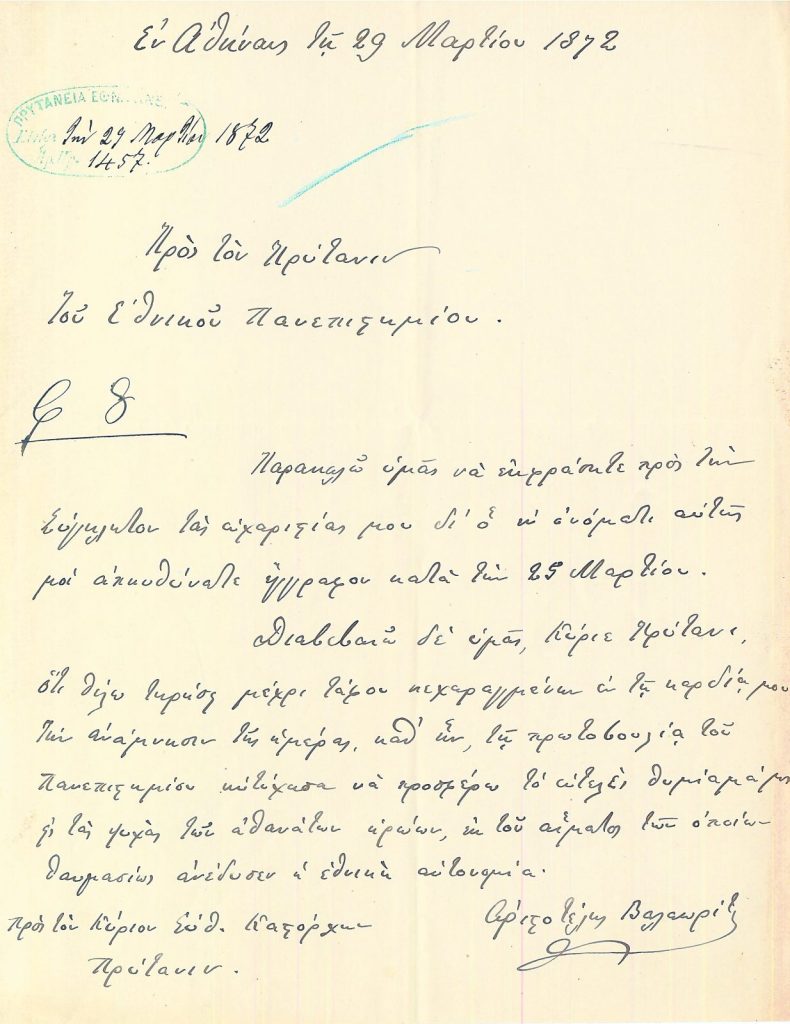 Ἐν Ἀθήναις τῇ 29 Μαρτίου 1872
ΠΡΥΤΑΝΕΙΑ ΕΘΝ
τὴν 29 Μαρτίου 1872
1457.
Πρὸς τὸν Πρύτανιν
τοῦ Ἐθνικοῦ Πανεπιστημίου.
Παρακαλῶ ὑμᾶς νὰ ἐκφράσητε πρὸς τὴν
Σύγκλητον τὰς εὐχαριστίας μου δι' ὃ ἐν ὀνόματι αὐτῆς
μοὶ ἀπευθύνατε ἔγγραφον κατὰ τὴν 25 Μαρτίου.
Διαβεβαιῶ δὲ ὑμᾶς, Κύριε Πρύτανι,
ὅτι θέλω τηρήσῃ μέχρι τάφου κεχαραγμένην ἐν τῇ καρδίᾳ μου
τὴν ἀνάμνησιν τῆς ἡμέρας, καθ' ἣν, τῇ πρωτοβουλίᾳ τοῦ
Πανεπιστημίου ηὐτύχησα νὰ προσφέρω τὸ εὐτελὲς θυμίαμά μου
εἰς τὰς ψυχὰς τῶν ἀθανάτων ἡρώων, ἐκ τοῦ αἵματος τῶν ὁποίων
θαυμασίως ἀνέδυσεν ἡ ἐθνικὴ αὐτονομία.
Ἀριστοτέλης Βαλαωρίτης
πρὸς τὸν Κύριον Εὐθ. Καστόρχην
Πρύτανιν.